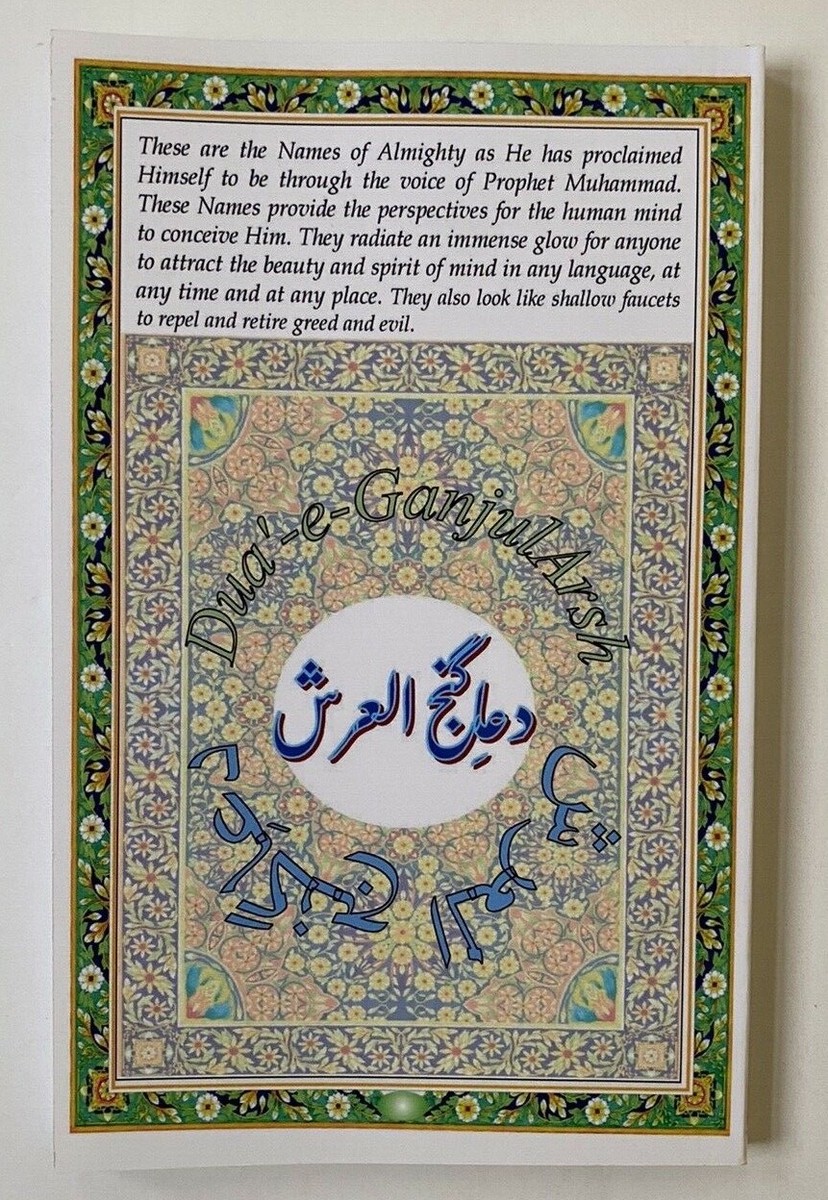 These are the Names of Almighty as He has proclaimed
Himself to be through the voice of Prophet Muhammad.
These Names provide the perspectives for the human mind
to conceive Him. They radiate an immense glow for anyone
to attract the beauty and spirit of mind in any language, at
any time and at any place. They also look like shallow faucets
to repel and retire greed and evil.
Dua'-e-GanjulArsh
دعاۓ گنج العرش